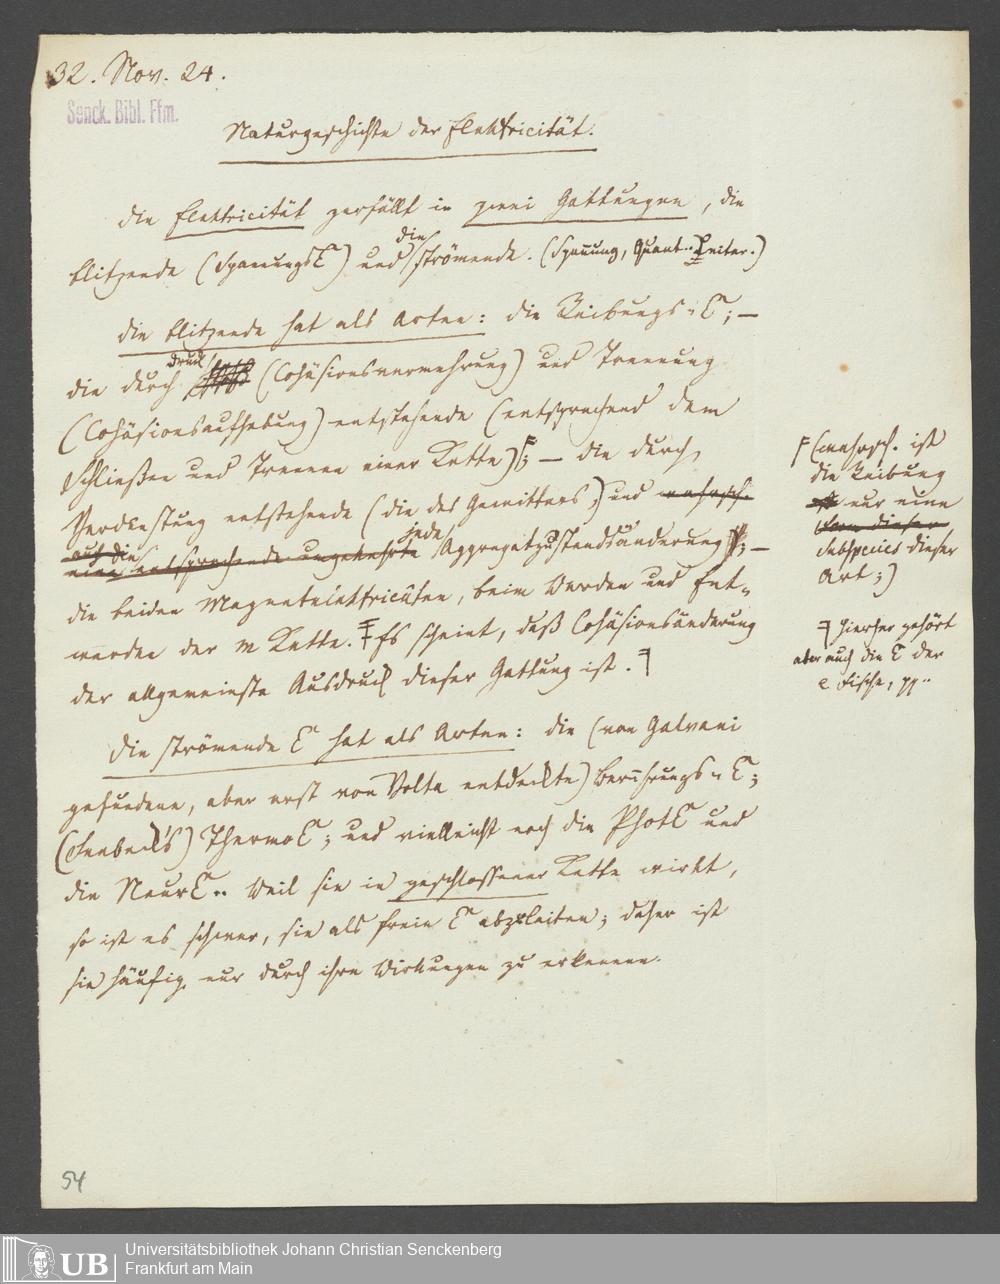 32. Nov. 24.
Senck. Bibl. Ffm.
Naturgeschichte der Elektricität.
Die Elektricität zerfällt in zwei Gattungen, die
die
blitzende (SpannungsE) und strömende. (Spannung, Quant.. Leiter.)
Die blitzende hat als Arten: die Reibungs-E; —
Druck
die durch (Cohäsionsvermehrung) und Trennung
(Cohäsionsaufhebung) entstehende (entsprechend dem
Schließen und Trennen einer Kette) F; — die durch
Verdunstung entstehende (die des Gewitters,) und wahrsch.
auch die jede
eine entsprechende ungekehrte Aggregatzustandsänderung; —
die beiden Magnetelektricitäten, beim Werden und Ent-
werden der M Kette. Es scheint, daß Cohäsionsänderung
der allgemeinste Ausdruck dieser Gattung ist.
F (wahrsch. ist
die Reibung
nur eine
dieser
Subspecies dieser
Art;)
hierher gehört
aber auch die E der
e Fische, pp..
Die strömende E hat als Arten: die (von Galvani
gefundene, aber erst von Volta entdeckte) Berührungs-E;
(Seebeck's) ThermoE; und vielleicht noch die PhotE und
die NeurE.. Weil sie in geschlossener Kette wirkt,
so ist es schwer, sie als freie E abzuleiten; daher ist
sie häufig nur durch ihre Wirkungen zu erkennen.
54
UB
Universitätsbibliothek Johann Christian Senckenberg
Frankfurt am Main